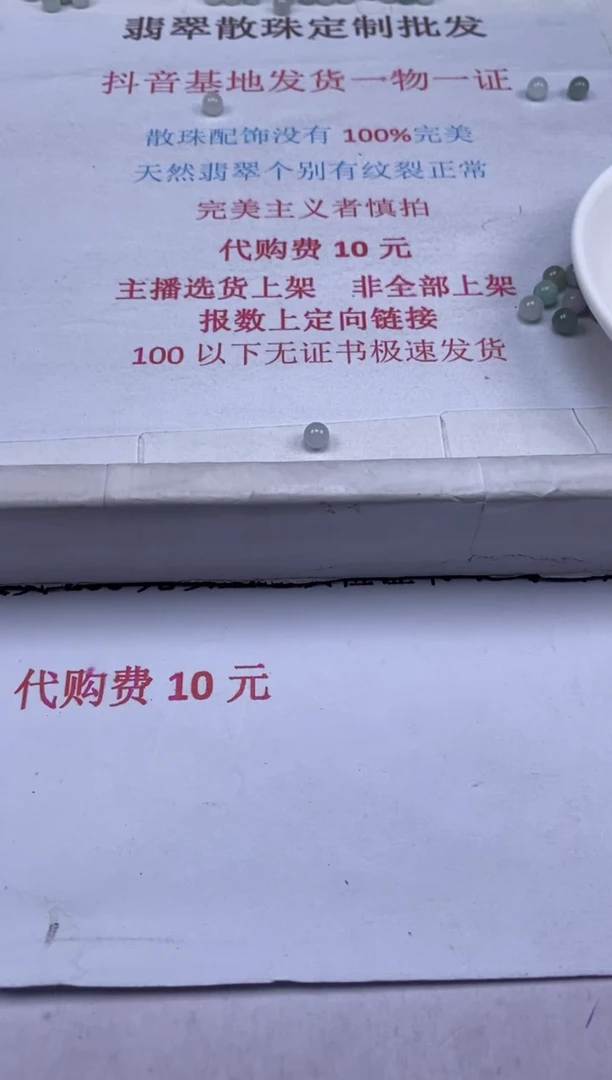 翡翠散珠定制批发
抖音基地发货一物一证
散珠配饰没有 100%完美
天然翡翠个别有纹裂正常
完美主义者慎拍
代购费 10 元
主播选货上架 非全部上架
报数上定向链接
100 以下无证书极速发货
代购费 10 元